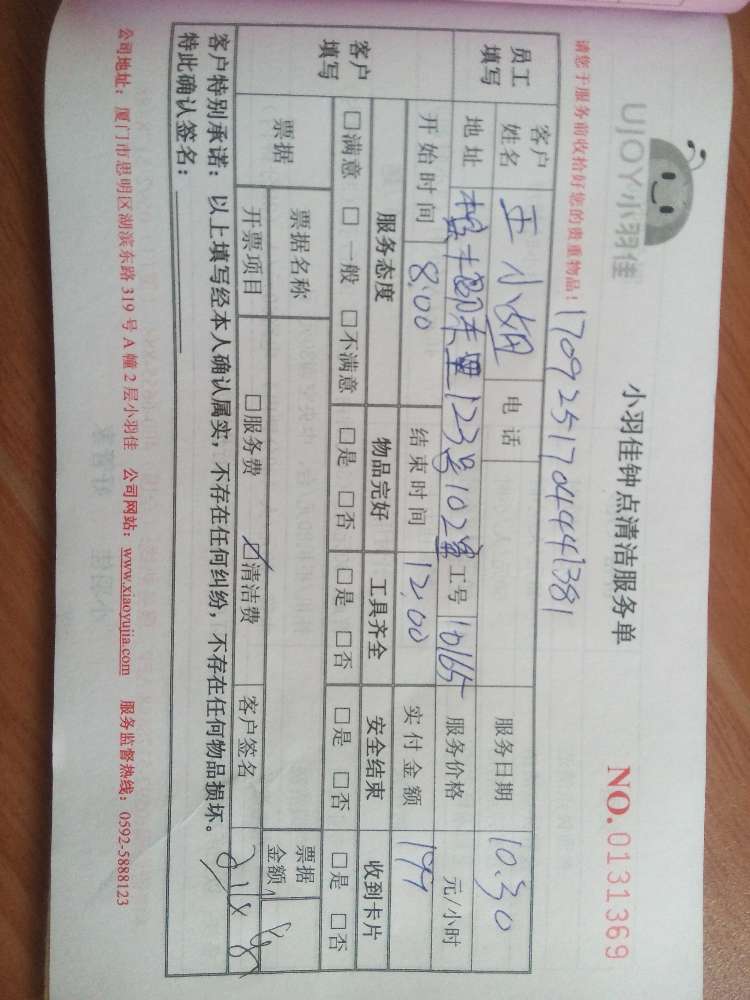 UJOY小羽佳
小羽佳钟点清洁服务单
NO. 0131369
请您于服务前收拾好您的贵重物品！
17092517044441381
员工填写
客户姓名 王小姐 电话 服务日期 10.30
地址 123号102室 工号 10165 服务价格 元/小时
开始时间 8:00 结束时间 12:00 实付金额 199
客户填写
服务态度 物品完好 工具齐全 安全结束 收到卡片
□满意 □一般 □不满意 □是 □否 □是 □否 □是 □否 □是 □否
票据 票据名称 票据金额
开票项目 □服务费 ☑清洁费 客户签名
客户特别承诺：以上填写经本人确认属实，不存在任何纠纷，不存在任何物品损坏。
特此确认签名：
公司地址：厦门市思明区湖滨东路319号A幢2层小羽佳 公司网站：www.xiaoyujia.com 服务监督热线：0592-5888123